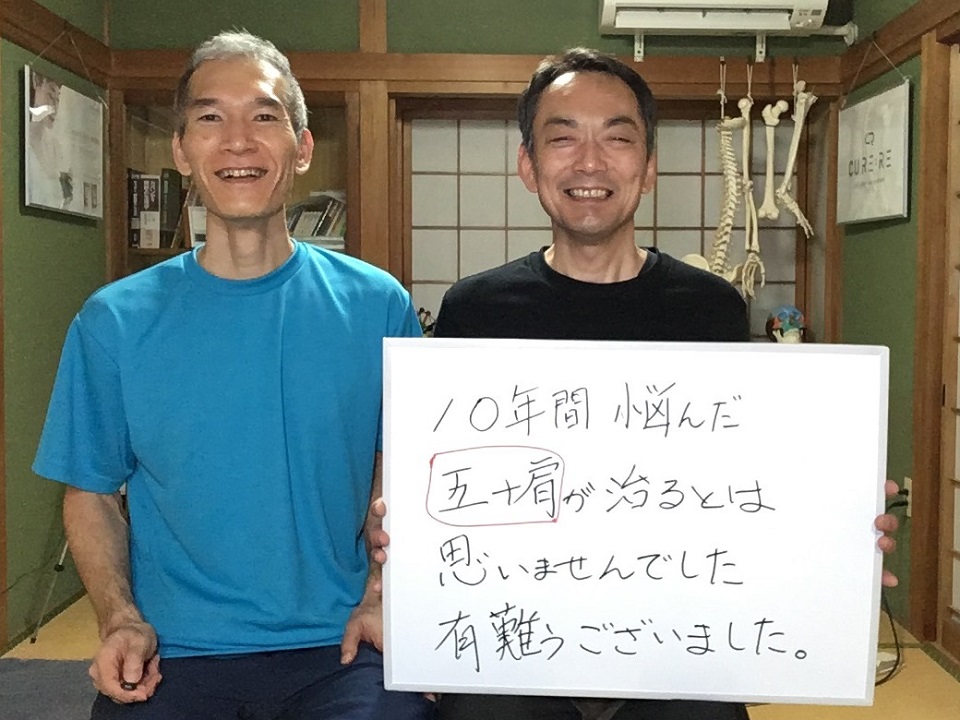 10年間 悩んだ
五十肩が治るとは
思いませんでした
有難うございました。
CURE:RE